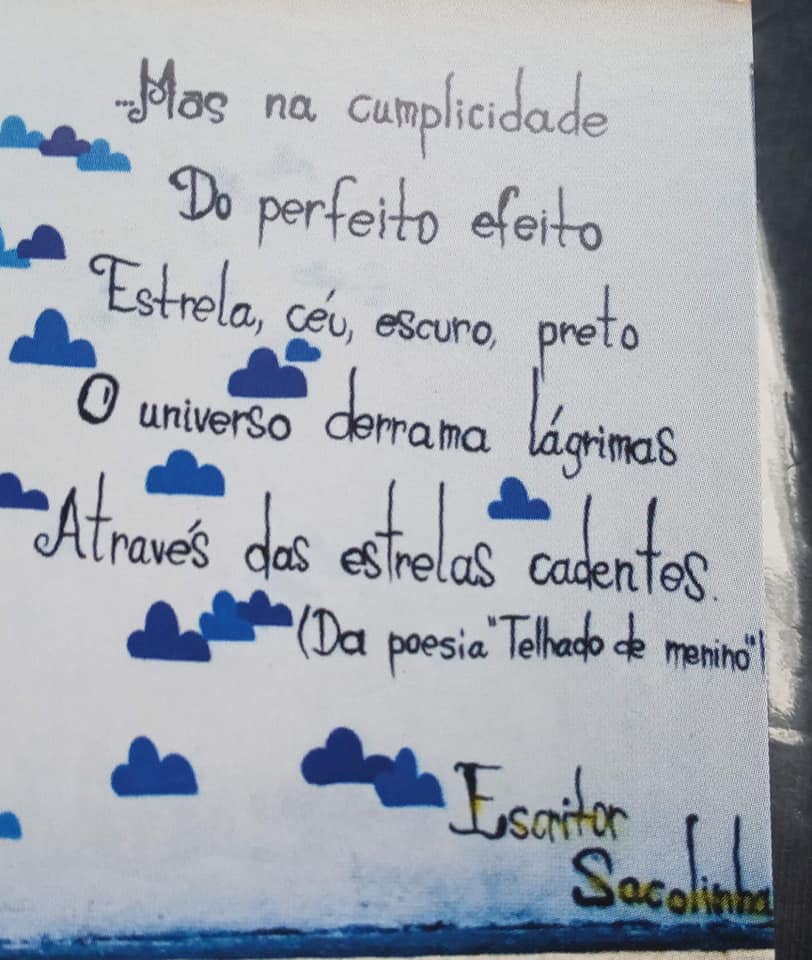 ...Mas na cumplicidade
Do perfeito efeito
Estrela, céu, escuro, preto
O universo derrama lágrimas
Através das estrelas cadentes.
(Da poesia "Telhado de menino")
Escritor
Sacolinha